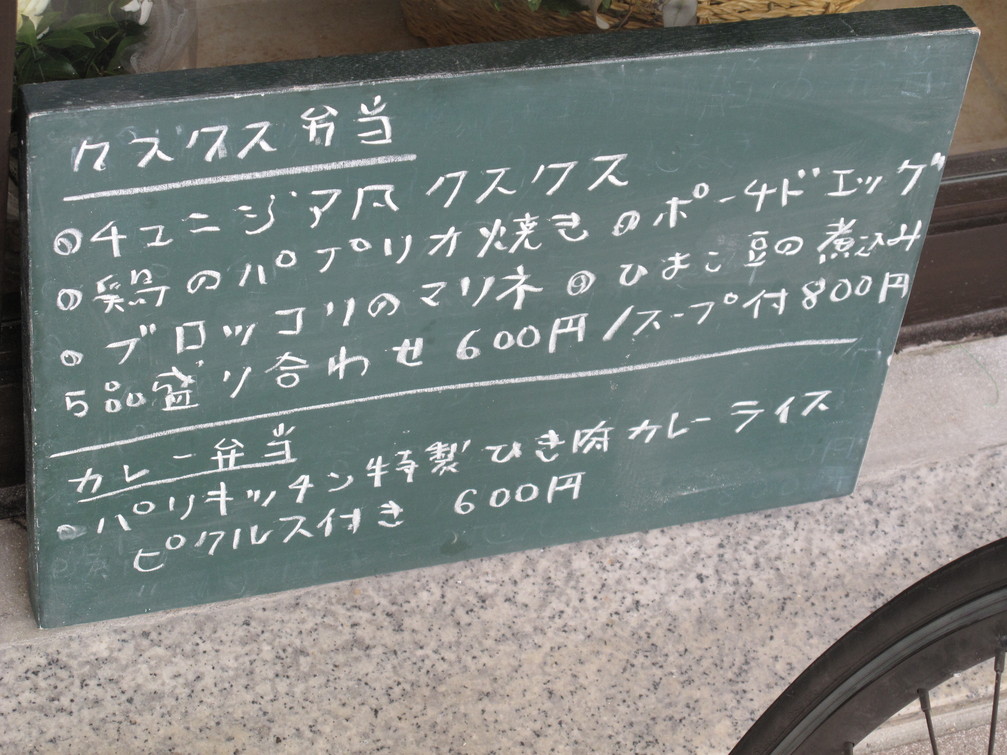 クスクス弁当
◎チュニジア风 クスクス
◎鶏のパプリオ焼き ◎ポーチドエッグ
◎ブロッコリのマリネ ◎ひよこ豆の煮込み
5品盛り合わせ 600円/スープ付800円
カレー弁当
◎パリキッチン特製 ひき肉カレーライス
ピクルス付き 600円